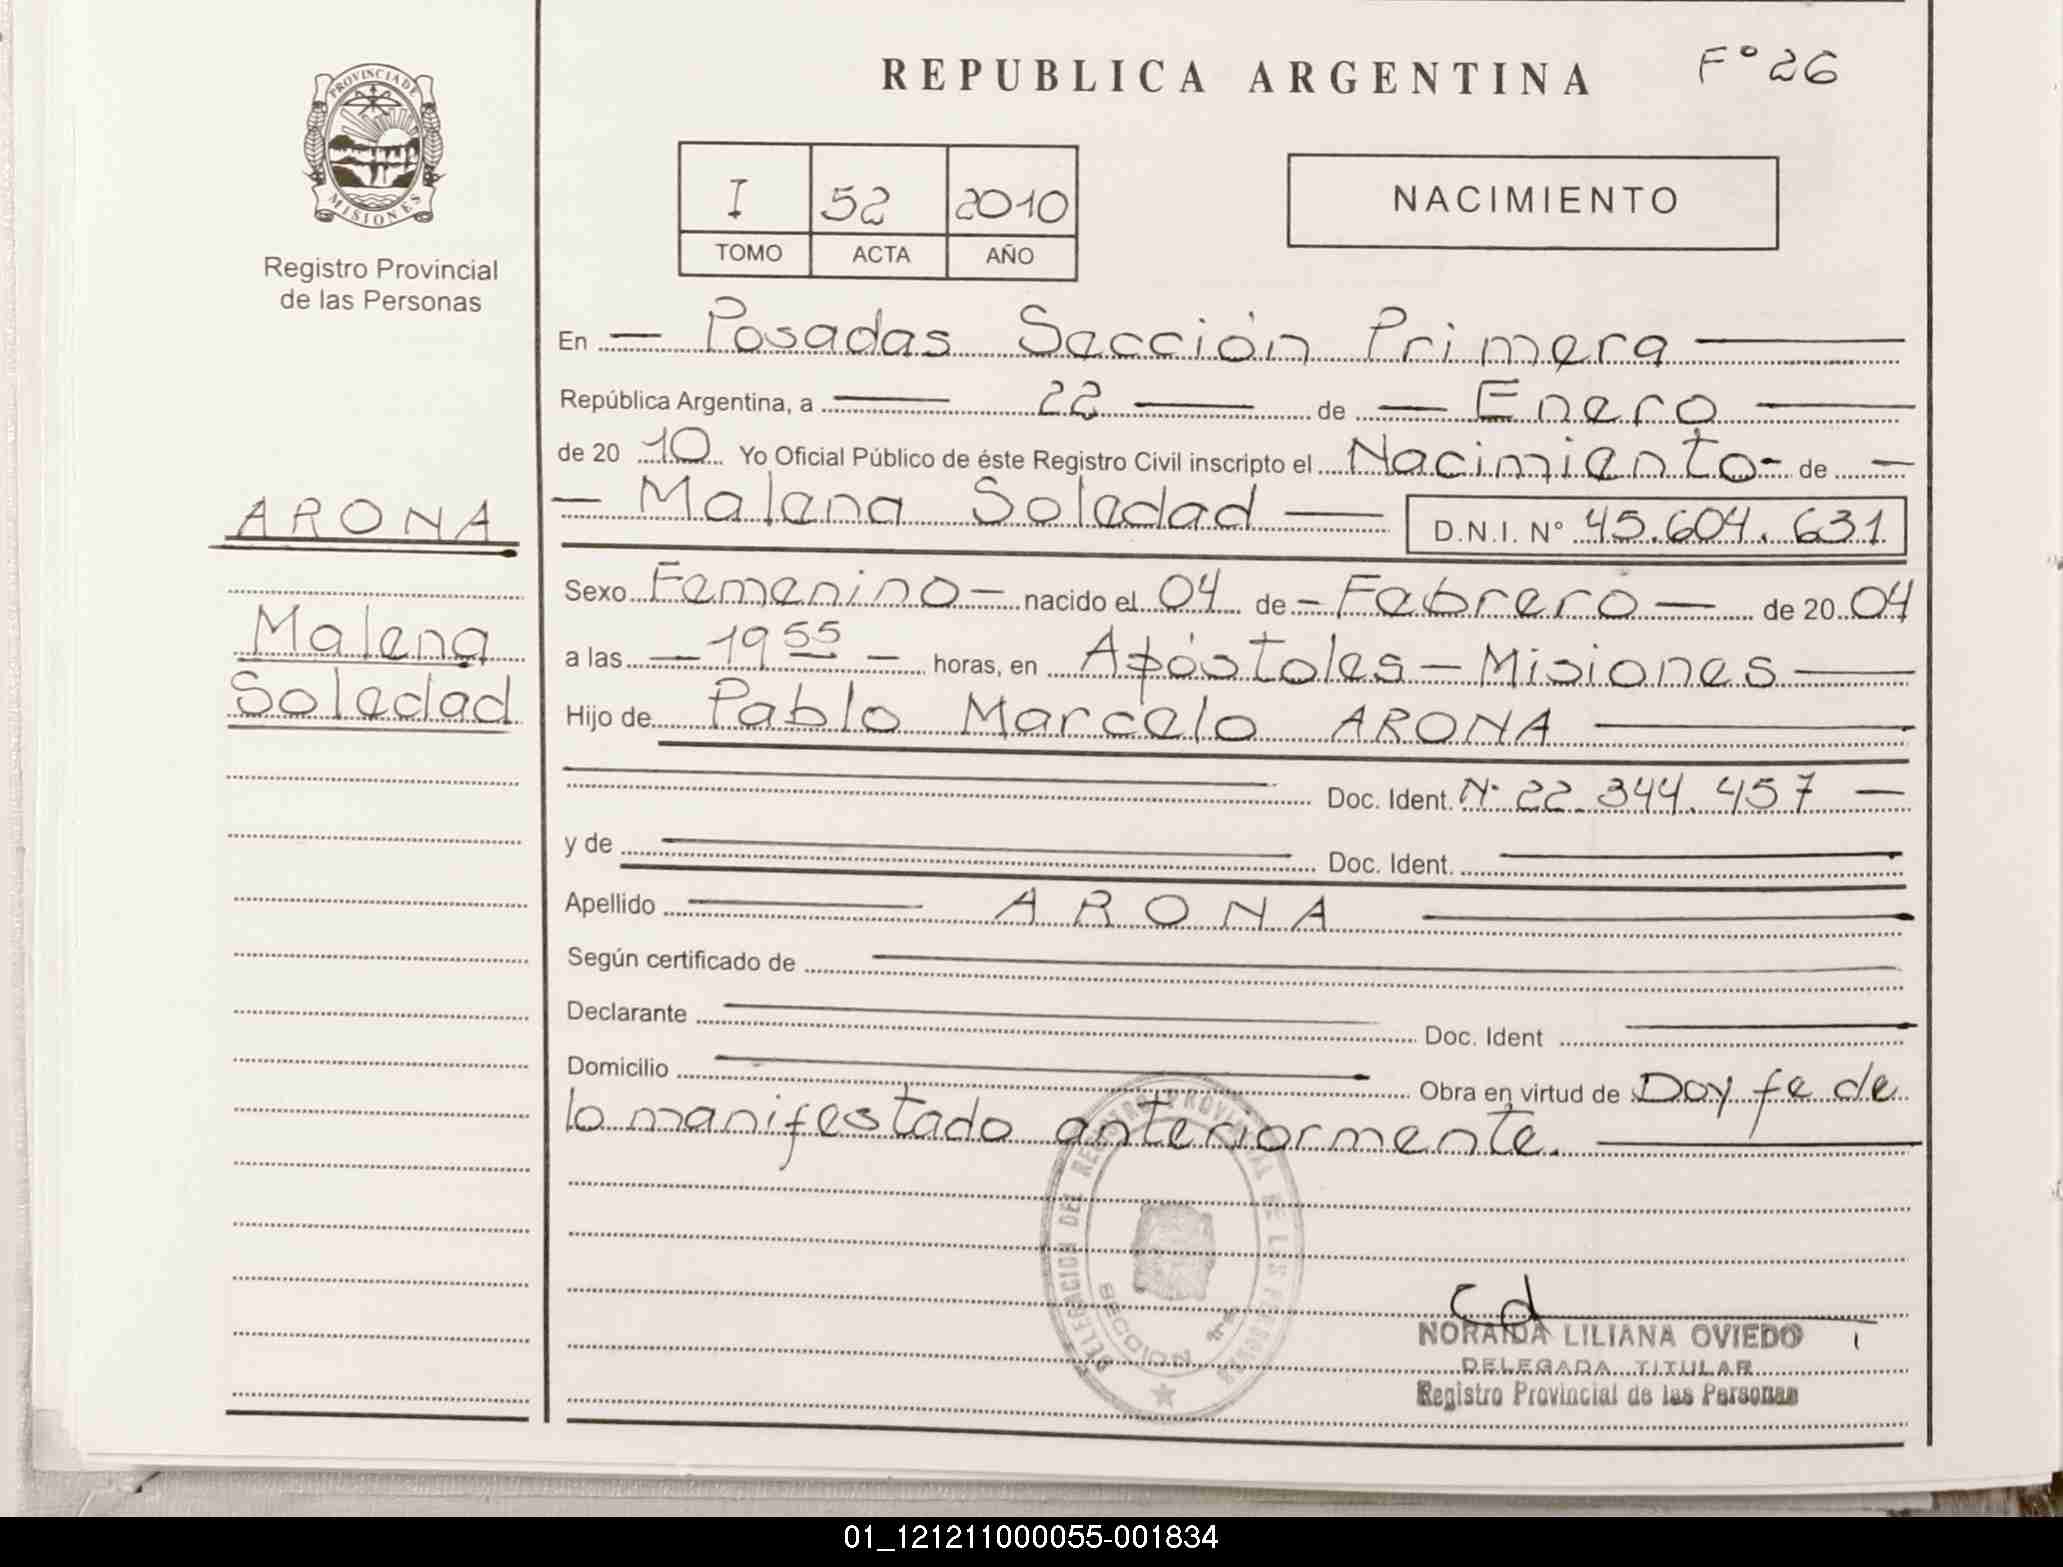 REPUBLICA ARGENTINA
F° 26
PROVINCIA DE
MISIONES
Registro Provincial
de las Personas
I 52 2010
TOMO ACTA AÑO
NACIMIENTO
En — Posadas Sección Primera —
República Argentina, a — 22 — de — Enero —
de 20 10 Yo Oficial Público de éste Registro Civil inscripto el Nacimiento - de —
— Malena Soledad — D.N.I. N° 45.604.631
ARONA
Malena
Soledad
Sexo Femenino — nacido el 04 de - Febrero — de 20 04
a las — 19 55 — horas, en Apóstoles - Misiones —
Hijo de Pablo Marcelo ARONA —
Doc. Ident. N° 22.344.457 —
y de — Doc. Ident. —
Apellido — ARONA —
Según certificado de —
Declarante — Doc. Ident —
Domicilio — Obra en virtud de Doy fe de
lo manifestado anteriormente. —
DELEGACION DEL REGISTRO PROVINCIAL DE LAS PERSONAS
SECCION 1ra
NORAIDA LILIANA OVIEDO
DELEGADA TITULAR
Registro Provincial de las Personas
01_121211000055-001834